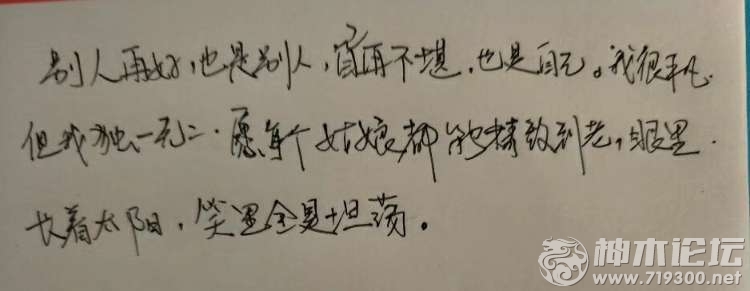 别人再好，也是别人，再不堪，也是自己。我很平凡.
但我独一无二．愿每个姑娘都能精致到老，眼里．
长着太阳，笑里全是坦荡。
神木论坛
www.719300.net